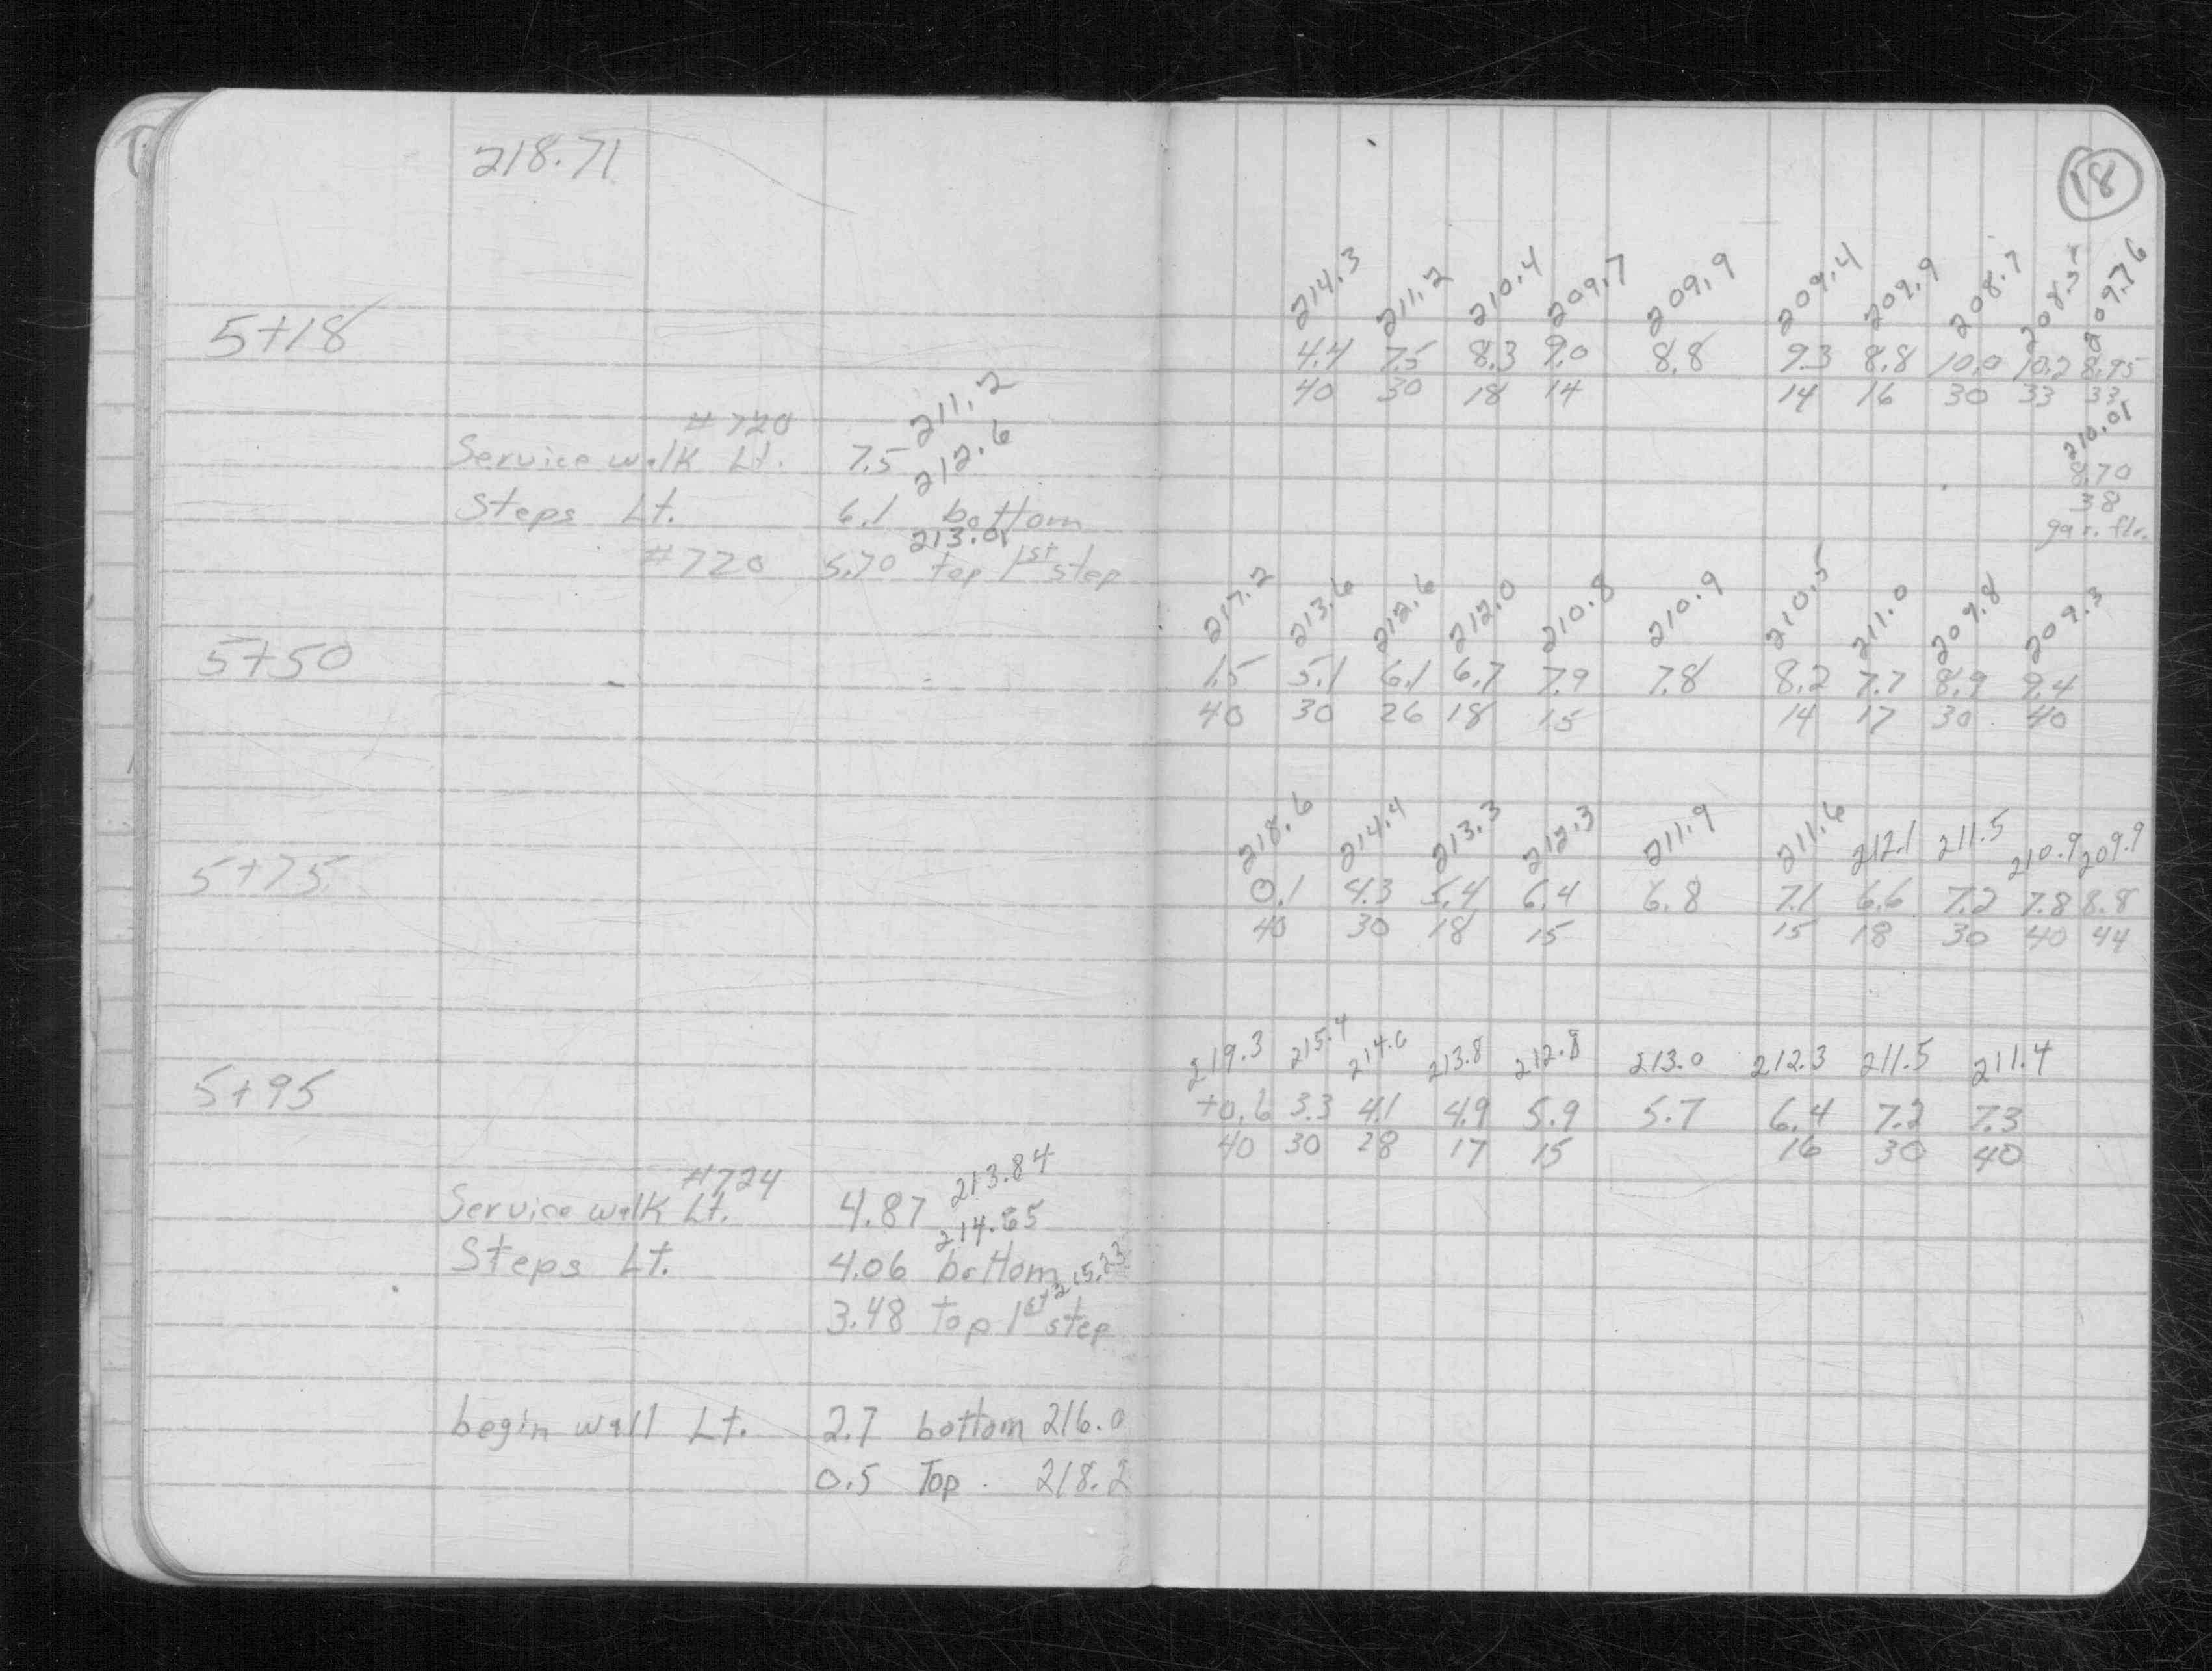 218.71
5+18
#720
211.2
Service walk Lt. 7.5
212.6
Steps Lt. 6.1 bottom
213.01
#720 5.70 top 1st step
5+50
5+75
5+95
#724
213.84
Service walk Lt. 4.87
214.65
Steps Lt. 4.06 bottom
215.23
3.48 top 1st step
begin wall Lt. 2.7 bottom 216.0
0.5 Top. 218.2
18
214.3 211.2 210.4 209.7 209.9 209.4 209.9 208.7 209.76
4.4 7.5 8.3 9.0 8.8 9.3 8.8 10.0 10.2 8.95
40 30 18 14 14 16 30 33 33
210.01
8.70
38
gar. flr.
217.2 213.6 212.6 212.0 210.8 210.9 210.5 211.0 209.8 209.3
1.5 5.1 6.1 6.7 7.9 7.8 8.2 7.7 8.9 9.4
40 30 26 18 15 14 17 30 40
218.6 214.4 213.3 212.3 211.9 211.6 212.1 211.5 210.9 209.9
0.1 4.3 5.4 6.4 6.8 7.1 6.6 7.2 7.8 8.8
40 30 18 15 15 18 30 40 44
219.3 215.4 214.6 213.8 212.8 213.0 212.3 211.5 211.4
+0.6 3.3 4.1 4.9 5.9 5.7 6.4 7.2 7.3
40 30 28 17 15 16 30 40